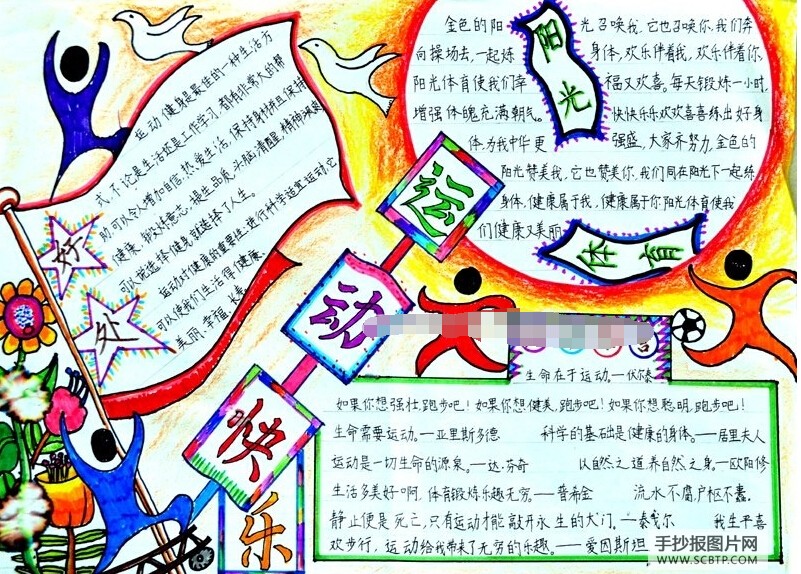 运动健身是最佳的一种生活方
式,不论是生活还是工作学习,都有非常大的帮
助,可以令人增加自信,热爱生活,保持身材并且保持
健康,锻炼意志,提生品质,头脑清醒,精神爽爽
可以说选择健身就选择了人生。
运动对健康的重要性:进行科学适宜运动,它
可以使我们生活得健康、
美丽、幸福、长寿。
好
处
运
动
快
乐
阳
光
金色的阳光召唤我,它也召唤你,我们奔
向操场去,一起炼身体,欢乐伴着我,欢乐伴着你,
阳光体育使我们幸福又欢喜。每天锻炼一小时,
增强体魄充满朝气。快快乐乐欢欢喜喜练出好身
体,为我中华更强盛,大家齐努力,金色的
阳光赞美我,它也赞美你,我们同在阳光下一起练
身体,健康属于我,健康属于你阳光体育使我
们健康又美丽
体育
言
生命在于运动。—伏尔泰
如果你想强壮,跑步吧!如果你想健美,跑步吧!如果你想聪明,跑步吧!
生命需要运动。—亚里斯多德 科学的基础是健康的身体。—居里夫人
运动是一切生命的源泉。—达·芬奇 以自然之道,养自然之身—欧阳修
生活多美好啊,体育锻炼乐趣无穷。—普希金 流水不腐,户枢不蠹。
静止便是死亡,只有运动才能敲开永生的大门。—泰戈尔 我生平喜
欢步行,运动给我带来了无穷的乐趣。—爱因斯坦
手抄报图片网
WWW.SCBTP.COM